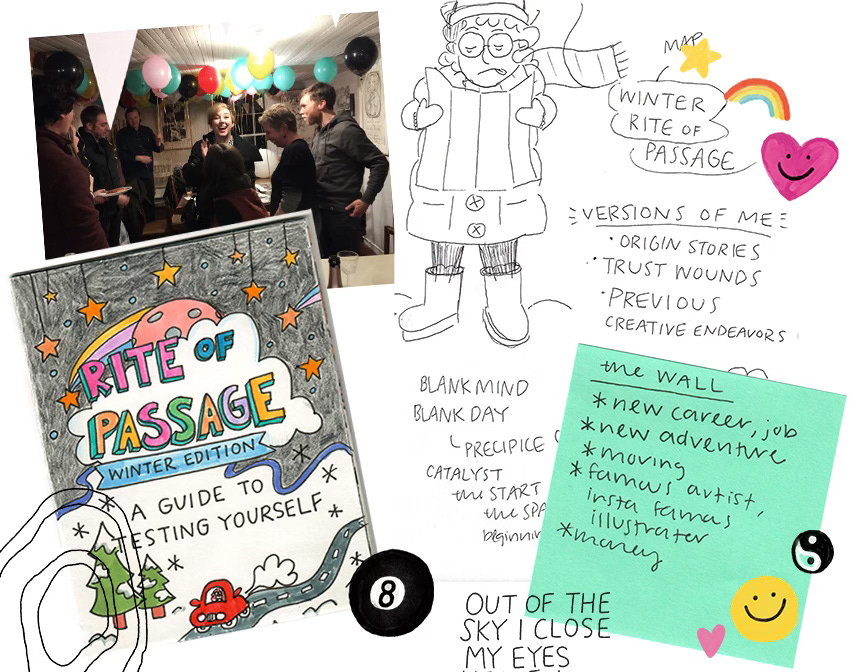 MAP
WINTER
RITE OF
PASSAGE
VERSIONS OF ME
• ORIGIN STORIES
• TRUST WOUNDS
• PREVIOUS
CREATIVE ENDEAVORS
RITE OF
PASSAGE
WINTER EDITION
A GUIDE TO
TESTING YOURSELF
BLANK MIND
BLANK DAY
PRECIPICE
CATALYST
the START
the
the WALL
* new career, job
* new adventure
* moving
* famous artist,
insta famous
illustrator
* money
8
OUT OF THE
SKY I CLOSE
MY EYES